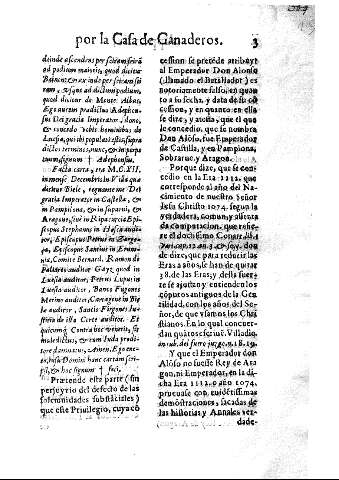 por la Casa de Ganaderos.
3
deinde ascendens per
ad podium maioris, quod dicitur
& usque ad dictum podium,
quod dicitur de Monte Albas,
Ego autem prædictus Adephon-
sus Dei gratia Imperator, dono,
& concedo vobis hominibus de
Luesia, qui ibi populatis, istos supra
dictos terminos, nunc, & in perpe-
tuum signum † Adephonsi.
Facta carta, era M.C.XII.
in mense Decembris, in Villa quæ
dicitur Biele, regnante me Dei
gratia Imperator in Castella, &
in Pampilona, & in suprarvi, &
Aragone, sive in Ripacurcia Epis-
copus Stephanus in
Episcopus Petrus in Zarago-
za, Episcopus Sanctius in
Comite Bernard. Ramon de
auditor Gayz, quod in
Luesia auditor, Petrus Lupus in
Luesia auditor, Banco Fugones
Merino auditor, Cavargene in Bie
la auditor, Santius Firgones
Et
quicumq; Contra hoc venerit, sit
maledictus, & cum Iuda prodito-
re damnatus, Amen. Ego
Domini hanc cartam scrip-
si, & hoc signum † feci.
Pretende esta parte (sin
perjuycio del defecto de las
solemnidades substãciales)
que este Privilegio, cuya cō
cession se pretẽde atribuyr
al Emperador Don Alonso
(llamado el Batallador) es
notoriamente falso, en quan
to a su fecha, y data de su cō
cession, y en quanto en ella
se dize, y assienta, que el que
le concedio, que se nombra
Don Alõso, fue Emperador
de Castilla, y en Pampiona,
Sobrarue, y Aragon.
Porque dize, que se con
cedio en la Era 1112. que
corresponde al año del Na-
cimiento de nuestro Señor
Iesu Christo 1074. segun la
verdadera, comun, y assenta
da computacion, que refie-
re el doctissimo
don-
de dize, que para reducir las
Eras a años, se han de quitar
38. de las Eras, y desta suer-
te se ajustan y entienden los
cõputos antiguos de la Gen-
tilidad, con los años del Se-
ñor, de que usamos los Chri
stianos. En lo qual concuer-
dan quãtos escriuẽ. Villadieg.
in rub. del fuero juzgo, n. 18. 19.
Y que el Emperador don
Alõso no fuesse Rey de Ara
gon, ni Emperador, en la di
cha Era 1112. o año 1074.
prueuase con euidẽtissimas
demostraciones, sacadas de
las historias, y Annales ver-
dade-